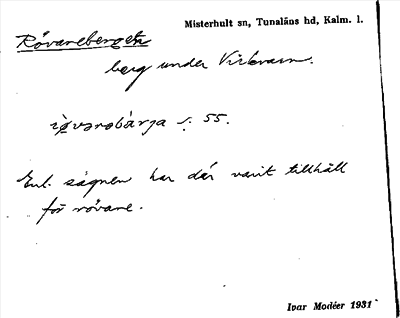 Misterhult sn, Tunaläns hd, Kalm. l.
Rövareberget
berg under Virkvarn.
55.
Enl. sägnen har där varit tillhåll
för rövare.
Ivar Modéer 1931